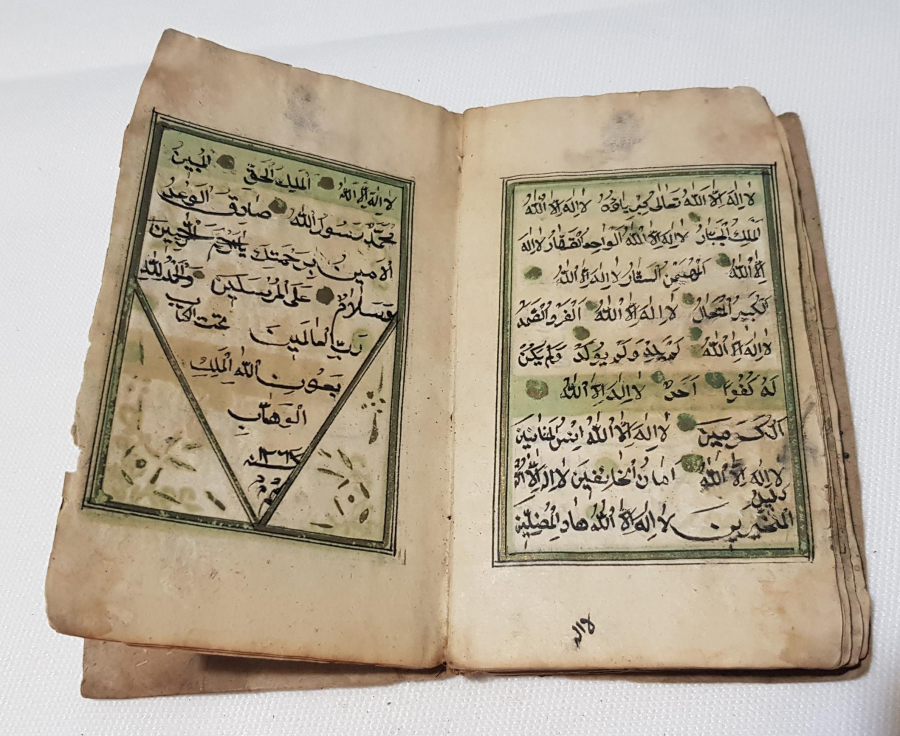 لا اله الا الله تعالى كبرياؤه لا اله الا الله
الملك الجبار لا اله الا الله الواحد القهار لا اله
الا الله المهيمن الستار لا اله الا الله
الكبير المتعال لا اله الا الله الفرد الصمد
لا اله الا الله لم يلد ولم يولد ولم يكن
له كفوا احد لا اله الا الله
لا اله الا الله انيس
لا اله الا الله امان الخائفين لا اله الا الله
دليل
المتحيرين لا اله الا الله هاد المضلين
لا اله
لا اله الا الله الملك الحق المبين
محمد رسول الله صادق الوعد
الامين برحمتك يا ارحم الراحمين
وسلام على المرسلين والحمد لله
رب العالمين تمت الكتاب
بعون الله الملك
الوهاب
سنة